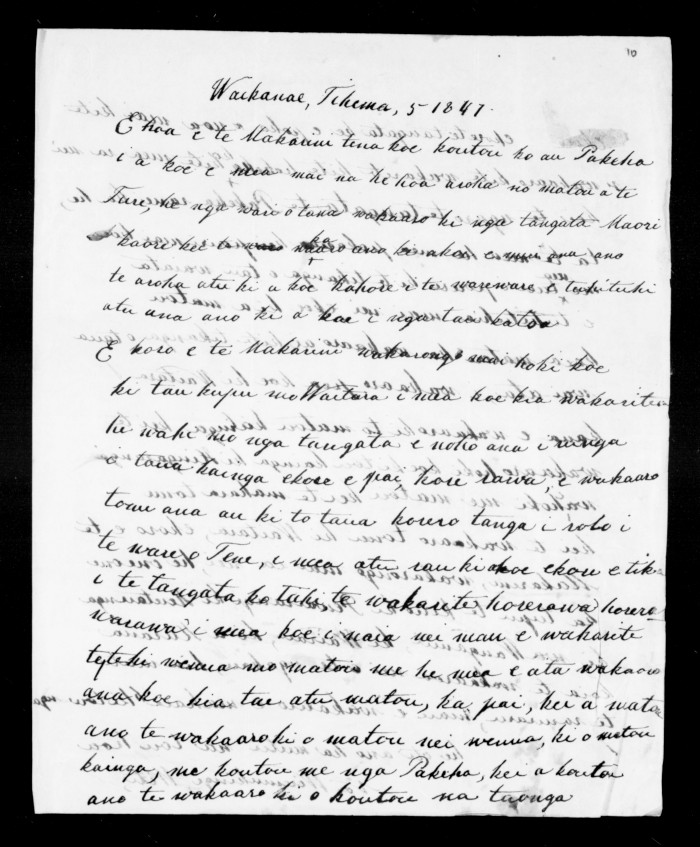 10
Waikanae, Tihema, 5 1847.
E hoa e te Makarini tena koe koutou ko au Pakeha
i a koe e mea mai na he hoa aroha no matou a te
Ture, he nga wari o tana wakaaro ki nga tangata Maori
kaore kei te ka ano ki akoe e mea ana ano
te aroha atu ki a koe kahore i te wareware e tuhituhi
atu ana ano ki a koe i nga tau katoa
E koro e te Makarini wakarongo mai hoki koe
ki tau kupu mo Waitara i mea koe kia wakaritea
he wahi mo nga tangata e noho ana i runga
i taua kainga ekore e pai, kore rawa, e wakaaro
tonu ana au ki to taua korero tanga i roto i
te ware o Tene, i mea atu rau ki akoe ekore e tika
i te tangata ko tahi te wakarite horerawa horero
warawa i mea koe i naia nei mau e wakarite
tetehi wenua mo matou me he mea e ata wakaaro
ana koe kia tae atu matou, ka pai, kei a matou
ano te wakaaro ki o matou nei wenua, ki o matou
kainga, me koutou me nga Pakeha, kei a koutou
ano te wakaaro ki o koutou na taonga